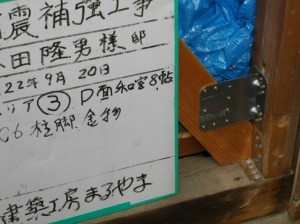 震補強工事
田隆男様邸
22年9月20日
③ P 西和室8帖
C6 柱脚金物
建築工房まるやま